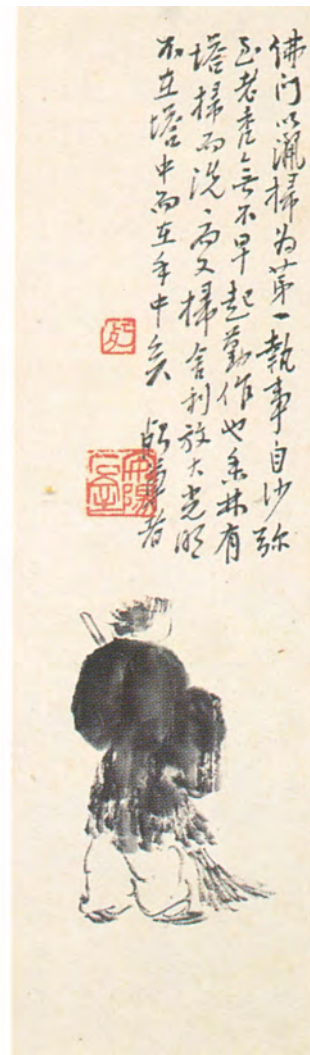 佛门以灑掃为第一執事自沙弥
至老秃无不早起勤作也香林有
塔掃而洗、而又掃舍利放大光明
不在塔中而在手中矣 者